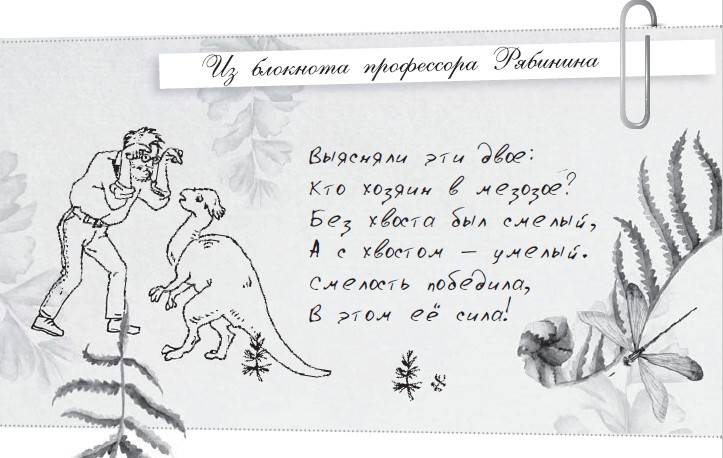 Из блокнота профессора Рябинина
Выясняли эти двое:
Кто хозяин в мезозое?
Без хвоста был смелый,
А с хвостом — умелый.
Смелость победила,
В этом её сила!